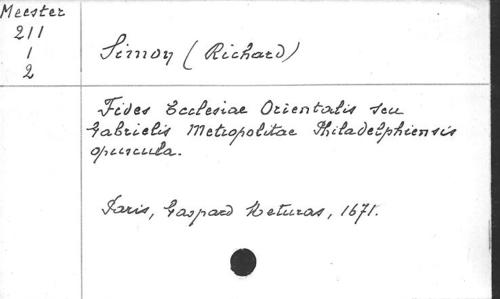 Meester
211
1
2
Simon (Richard)
Fides Ecclesiae Orientalis seu
Gabrielis Metropolitae Philadelphiensis
opuscula.
Paris, Gaspard Meturas, 1671.